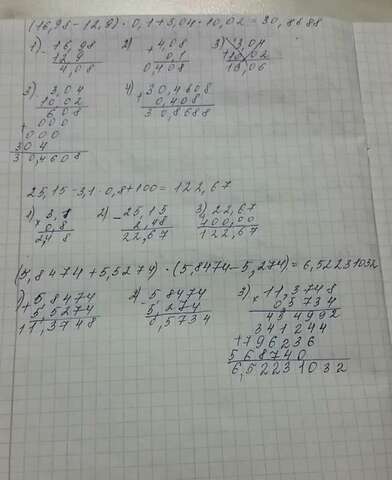 (16,98 - 12,9) · 0,1 + 3,04 · 10,02 = 30,8688
1) 16,98 2) 4,08 3) 3,04
- 12,9 × 0,1 + 10,02
4,08 0,408 13,06
3) 3,04 4) 30,4608
10,02 + 0,408
608 30,8688
+ 000
000
304
30,4608
25,15 - 3,1 · 0,8 + 100 = 122,67
1) 3,1 2) 25,15 3) 22,67
× 0,8 - 2,48 100,00
2,48 22,67 122,67
(5,8474 + 5,5274) · (5,8474 - 5,274) = 6,52231032
1) 5,8474 2) 5,8474 3) 11,3748
+ 5,5274 - 5,274 × 0,5734
11,3748 0,5734 454992
341244
+ 796236
568740
6,52231032